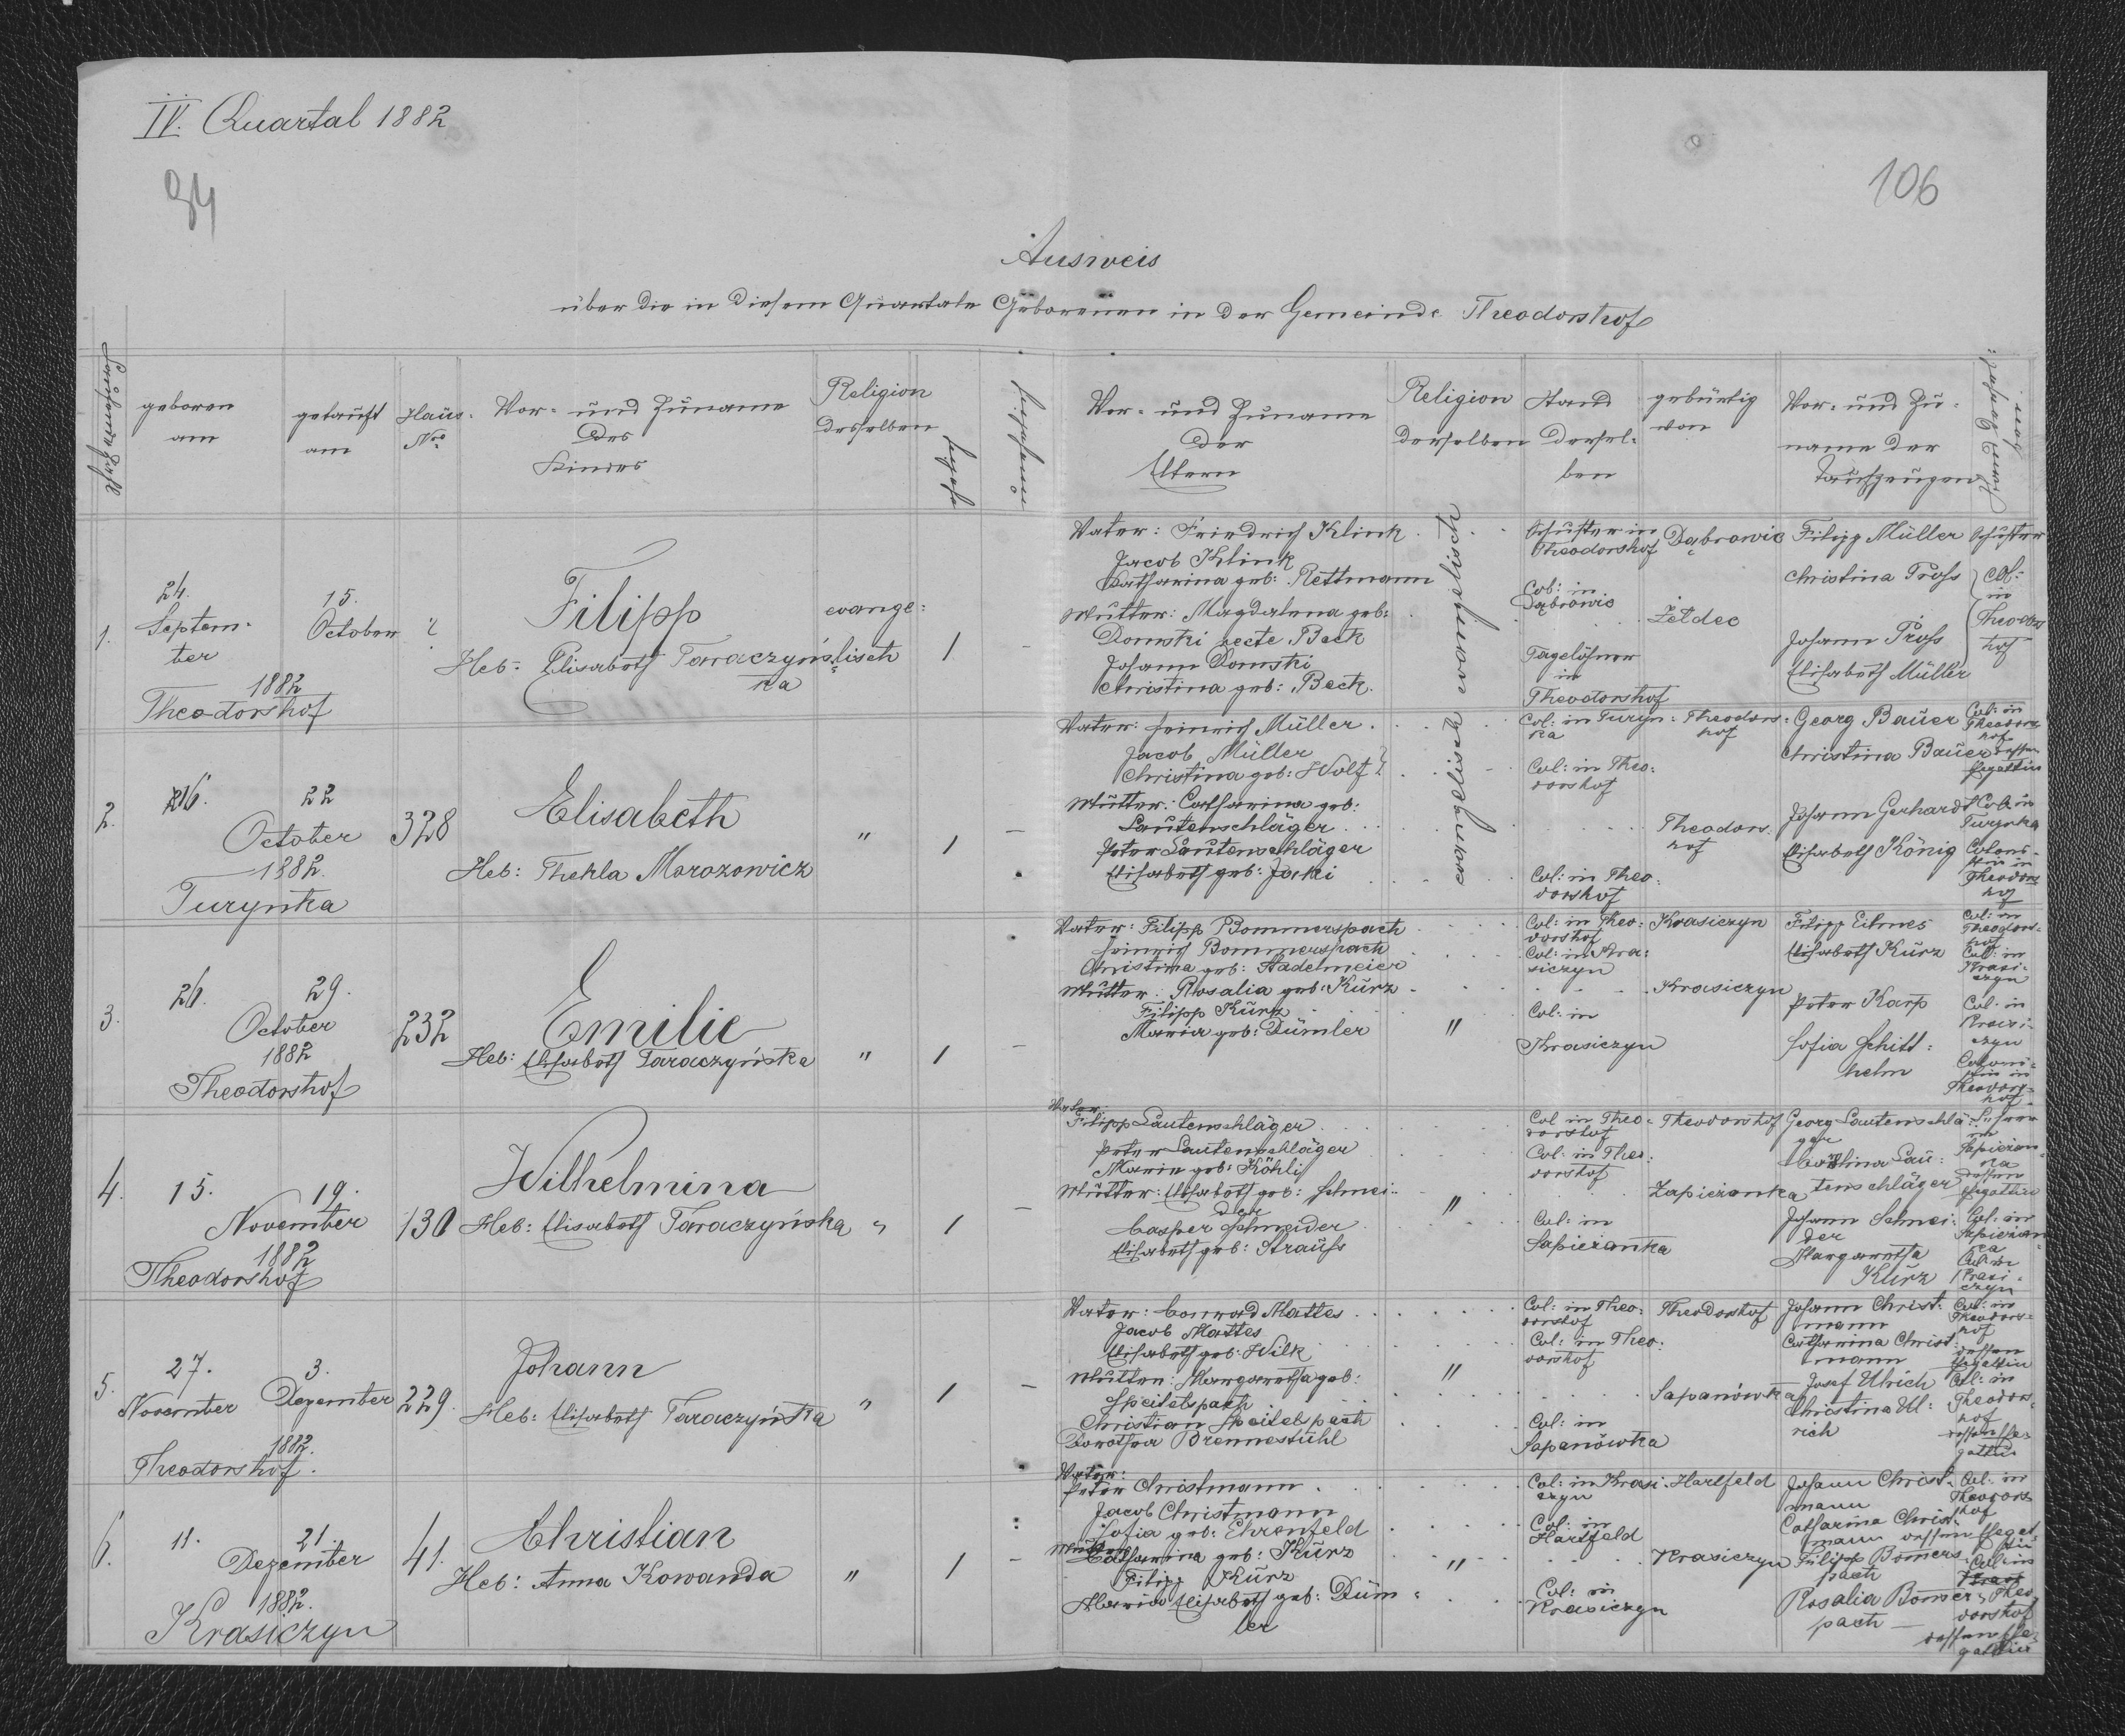 IV. Quartal 1882
94
106
Ausweis
über die in diesem Quartale Geborenen in der Gemeinde Theodorshof
geboren am
getauft am
Haus-Nro
Vor- und Zuname des Kindes
Religion desselben
ehelich
unehelich
Vor- und Zuname der Eltern
Religion derselben
Stand dersel-ben
gebürtig von
Vor- und Zu-name der Taufzeugen
evangelisch
1.
24. Septem-ber
15. October
1882
Theodorshof
Filipp
Heb: Elisabeth Taraczyńs-ka
evange-lisch
1
Vater: Friedrich Klink
Jacob Klink
Katharina geb: Rettmann
Mutter: Magdalena geb:
Domski recte Beck
Johann Domski
Christina geb: Beck.
Schuster in Theodorshof
Col: in Dąbrowie
Tagelöhner in Theodorshof
Dąbrowie
Żeldec
Filipp Müller Schuster
Christina Pross
Johann Pross
Elisabeth Müller
Col: in Theodorshof
2.
26.
22
October
1882.
Turynka
328
Elisabeth
Heb: Thekla Morozowicz
"
1
Vater: Heinrich Müller
Jacob Müller
Christina geb: Wolf
Mutter: Catharina geb:
Lautenschläger
Peter Lautenschläger
Elisabeth geb: Jacki
Col: in Turyn-ka
Col: in Theo-dorshof
Col: in Theo-dorshof
Theodors-hof
Theodors-hof
Georg Bauer Col: in Theodorshof
Christina Bauer dessen Ehegattin
Johann Gerhardt Col: in Turynka
Elisabeth König Colonistin in Theodorshof
3.
26.
29.
October
1882
Theodorshof
232
Emilie
Heb: Elisabeth Taraczyńska
"
1
Vater: Filipp Bommerspach
Heinrich Bommerspach
Christina geb: Stadelmeier
Mutter: Rosalia geb: Kurz
Filipp Kurz
Maria geb: Dümler
"
Col: in Theo-dorshof
Col: in Kra-siczyn
Col: in Krasiczyn
Krasiczyn
Krasiczyn
Filipp Eilmes Col: in Theodors-hof
Elisabeth Kurz Col: in Krasi-czyn
Peter Karp Col: in Krasi-czyn
Sofia Schitt-helm Coloni-stin in Theodors-hof
4.
15.
19.
November
1882
Theodorshof
130
Wilhelmina
Heb: Elisabeth Taraczyńska
"
1
Vater:
Filipp Lautenschläger
Peter Lautenschläger
Maria geb: Köhli
Mutter: Elisabeth geb: Schnei-der
Casper Schneider
Elisabeth geb: Strauss
"
Col in Theo-dorshof
Col: in Theo-dorshof
Col: in Sapieżanka
Theodorshof
Zapieżanka
Georg Lautenschlä-ger
Carolina Lau-tenschläger dessen Ehegattin
Johann Schnei-der Col: in Sapieżan-ka
Margaretha Kurz Col: in Krasi-czyn
5.
27. November
3. Dezember
1882.
Theodorshof.
229.
Johann
Heb: Elisabeth Taraczyńska
"
1
Vater: Conrad Mattes
Jacob Mattes
Elisabeth geb: Wilk
Mutter: Margaretha geb:
Speitelspach
Christian Speitelspach
Dorothea Brennestuhl
"
Col: in Theo-dorshof
Col: in Theo-dorshof
Col: in Sapanówka
Theodorshof
Sapanówka
Johann Christ-mann Col: in Theodors-hof
Catharina Christ-mann dessen Ehegattin
Josef Ulrich Col: in Theodors-hof
Christina Ul-rich dessen Ehe-gattin
6.
11.
21.
Dezember
1882.
Krasiczyn
41.
Christian
Heb: Anna Kowanda
"
1
Vater:
Peter Christmann
Jacob Christmann
Sofia geb: Ehrenfeld
Mutter:
Catharina geb: Kurz
Filipp Kurz
Maria Elisabeth geb: Düm-ler
"
Col: in Krasi-czyn
Col: in Hartfeld
Col: in Krasiczyn
Hartfeld
Krasiczyn
Johann Christ-mann Col: in Theodors-hof
Catharina Christ-mann dessen Ehegat-tin
Filipp Bomers-pach Col: in Theo-dorshof
Rosalia Bomers-pach dessen Ehe-gattin